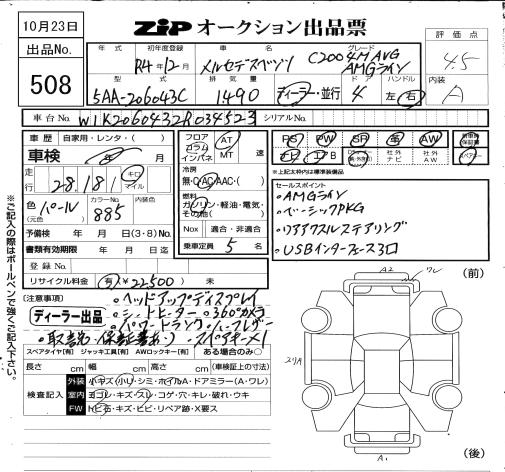 10月23日
ZIP オークション出品票
出品No.
508
年式 初年度登録 車名 グレード
R4年12月 メルセデスベンツ C200 4M AVG AMGライン
評価点
4.5
型式 排気量 ドア ハンドル
5AA-206043C 1490 ディーラー・並行 4 左・右
内装
A
車台No. W1K2060432R034523 シリアルNo.
車歴 自家用・レンタ・( )
車検 年 月
フロア コラム インパネ AT MT 速
PS PW SR 革 AW
新車時保証書
エアB
社外ナビ 社外AW
※上記太枠内は標準装備品
走行 28,181 キロ マイル
冷房 無・AC・AAC・( )
色 (元色) パール カラーNo. 885 内装色
燃料 ガソリン・軽油・電気・その他( )
予備検 年 月 日(3・8)No.
Nox 適合・非適合
書類有効期限 年 月 日迄
乗車定員 5 名
登録No.
リサイクル料金 有 ¥22,500 未
セールスポイント
・AMGライン
・ベーシックPKG
・リアアクスルステアリング
・USBインターフェース3口
(注意事項)
ディーラー出品
・ヘッドアップディスプレイ
・シートヒーター ・360°カメラ
・パワートランク
・取説・保証書あり ・スペアキー×1
スペアタイヤ[有] ジャッキ工具[有] AWロックキー[有] ある場合のみ〇
長さ cm 幅 cm 高さ cm (車検証上の寸法)
検査記入
外装 小キズ・小リ・シミ・ホイルA・ドアミラー(A・ワレ)
室内 ヨゴレ・キズ・スレ・コゲ・穴・キレ・破れ・ウキ
FW トビ石・キズ・ヒビ・リペア跡・X要ス
※ご記入の際はボールペンで強くご記入下さい。
A2 ワレ
(前)
A1
(後)